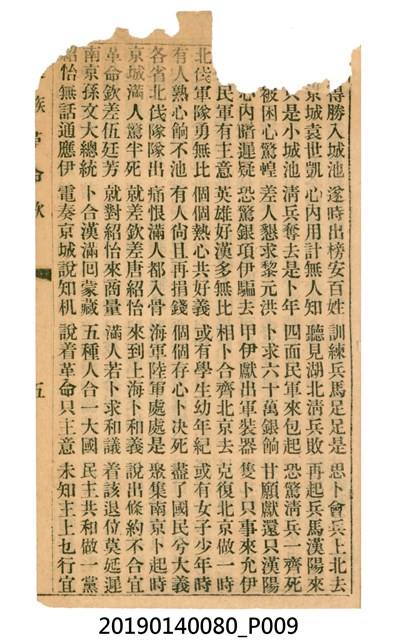 得勝入城池 遂時出榜安百姓 訓練兵馬足足是 思卜會兵上北去
京城袁世凱 心內用計無人知 聽見湖北淸兵敗 再起兵馬漢陽來
只是小城池 淸兵奪去是卜年 四面民軍來包起 恐驚淸兵一齊死
被困心驚惶 差人懇求黎元洪 卜求六十萬銀餉 甘願獻還只漢陽
心內暗遲疑 恐驚銀項伊騙去 甲伊獻出軍裝器 隻卜只事來允伊
民軍有主意 英雄好漢多無比 相卜合齊北京去 克復北京做一時
北伐軍隊勇無比 個個熱心共好義 或有學生幼年紀 或有女子少年時
有人熱心餉不池 有人尙且再捐錢 個個存心卜决死 盡了國民兮大義
各省北伐隊隊出 痛恨滿人都入骨 海軍陸軍處處是 聚集南京卜起時
京城滿人驚半死 就差欽差唐紹怡 來到上海卜和義 說出條約不合宜
革命欽差伍廷芳 就對紹怡來商量 滿人若卜求和議 着該退位莫延遲
南京孫文大總統 卜合漢滿回蒙藏 五種人合一大國 民主共和做一黨
紹怡無話通應伊 電奏京城說知机 說着革命只主意 未知主上乜行宜
族革命歌 五
20190140080_P009